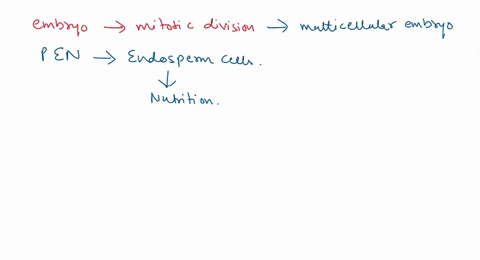 embryo → mitotic division → multicellular embryo
PEN → Endosperm cells.
↓
Nutrition.